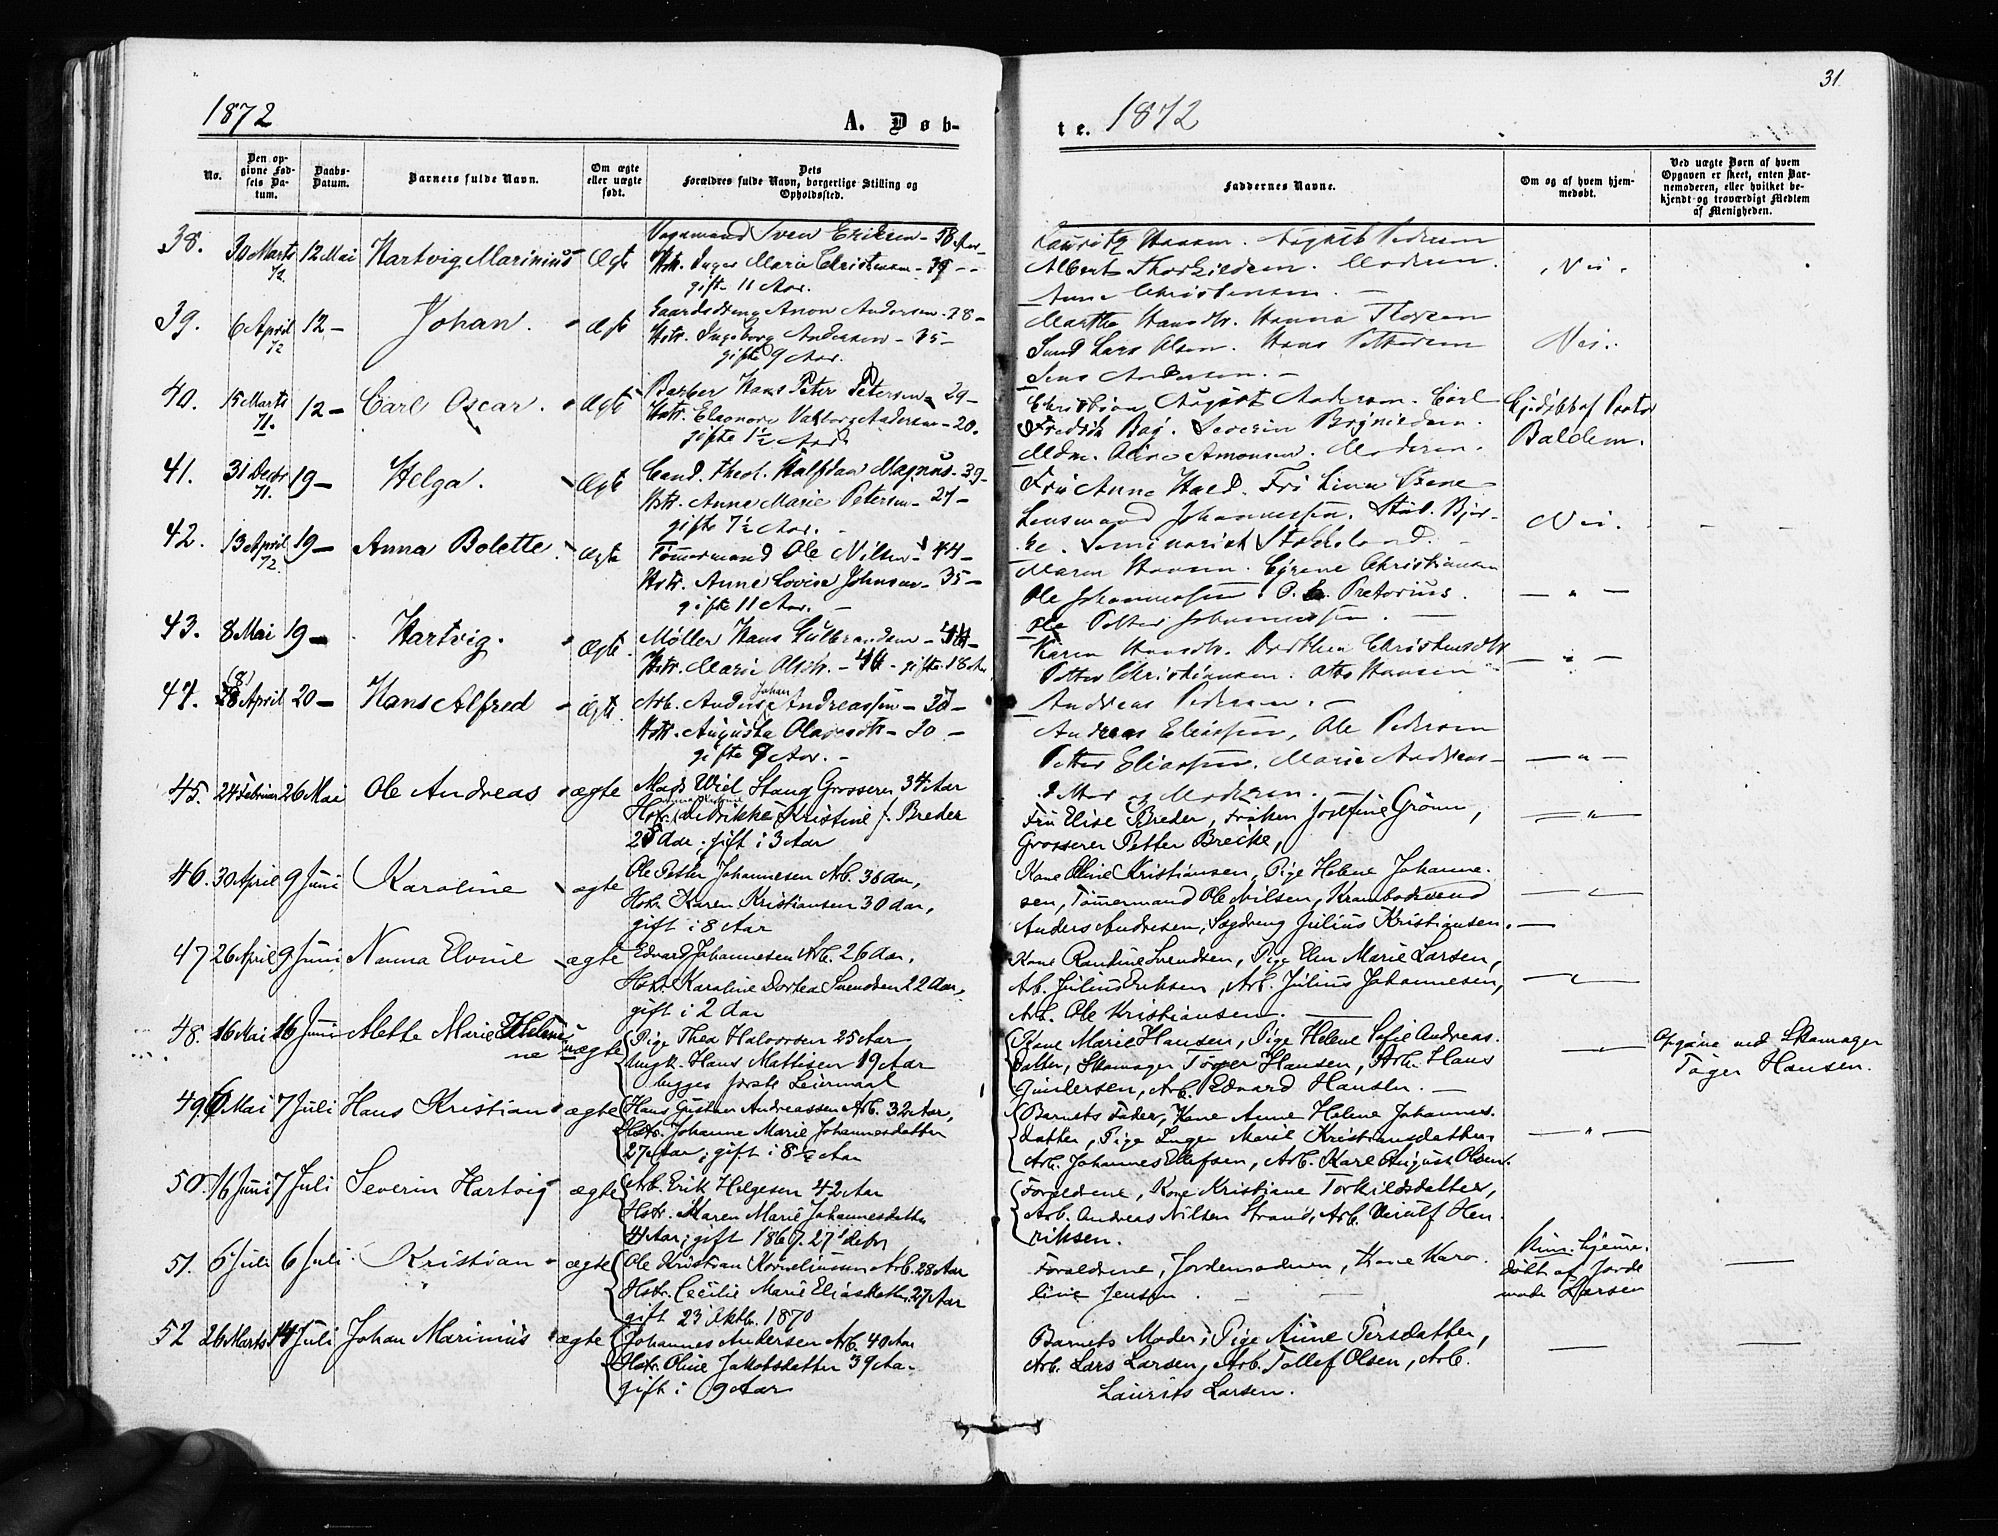 31
1872
A. Døb-
te. 1872
No.
Den op-
givne Fød-
sels Da-
tum.
Daabs-
Datum.
Barnets fulde Navn.
Om ægte
eller uægte
født.
Dets
Forældres fulde Navn, borgerlige Stilling og
Opholdssted.
Faddernes Navne.
Om og af hvem hjem-
medøbt.
Ved uægte Børn af hvem
Opgaven er skeet, enten Bar-
nemoderen, eller hvilket be-
kjendt og troværdigt Medlem
af Menigheden.
38. 30 Marts 72 12 Mai Hartvig Marinius Ægte
Sven Eriksen - 38 Aar
Hstr. Inger Marie Christensen - 39 - -
gifte 11 Aar.
Lauritz Hansen. August Pedersen
Albert Thorkildsen. Moderen.
Anne Christensen. -
Nei.
39. 6 April 72 12 - Johan. - Ægte
Anon Andersen - 38 -
Hstr. Ingeborg Andersen - 35 -
gifte 9 Aar.
Martha Hansdtr. Hanna
Lars Olsen. Hans Pettersen
Jens Andersen. -
Nei.
40. 15 Marts 71. 12 - Carl Oscar. - Ægte
Barber Hans Peter Petersen - 29 -
Hstr. Eleonore Valborg Andersen - 20.
gifte 1½ Aar.
Christian August Andersen. Carl
Fredrik Severin
Moderen.
af Pastor
41. 31 Decbr 71. 19 - Helga. - Ægte
Cand. theol. Halfdan Magnus - 39 -
Hstr. Anne Marie Petersen - 27 -
gifte 7½ Aar. -
Fru Anne Hald. Fru Lina Stene
Lensmand Johannessen. Stud. Bjer-
ke. Seminarist
Nei. - -
42. 13 April 72. 19 - Anna Bolette. - Ægte
Tømmermand Ole Nilsen - 44 -
Hstr. Anne Lovise Johnsen - 35 -
gifte 11 Aar. -
Maren Hansen. Christiansen
Ole Johannessen. Pretorius.
Petter Johannessen. -
- " -
43. 8 Mai 19 - Hartvig. - Ægte.
Møller Hans Gulbrandsen - 44 -
Hstr. Marie Olsdtr. - 44 - gifte 18 Aar
Karen Hansdtr. Dorthea Christensdtr
Petter Christiansen. Otto Hansen
Andreas Pedersen. -
- " -
44. 28 (8) April 20 - Hans Alfred - Ægte.
Arb. Anders Johan Andreassen - 27 -
Hstr. Augusta Olavesdtr - 30 -
gifte 9 Aar. -
Andreas Eliassen, Ole Pedersen
Petter Eliassen. Marie Andreas-
datter og Moderen. -
- " -
45. 24 Februar 26 Mai Ole Andreas - ægte
Mads Wiel Stang Grosserer 34 Aar
Hstr. Didrikke Kristine f. Breder
25 Aar; gift i 3 Aar
Fru Elise Breder, Frøken Josefine Grönn,
Grosserer Petter Brecke,
- " -
46. 30 April 9 Juni Karoline - ægte
Ole Petter Johannesen Arb. 36 Aar,
Hstr. Karen Kristiansen 30 Aar,
gift i 8 Aar
Kone Oline Kristiansen, Pige Helene Johanne-
sen, Tømmermand Ole Nilsen, Krambodsvend
Anders Andresen, Sagdreng Julius Kristiansen. -
- " -
47 26 April 9 Juni Nanna Elvine - ægte
Edvard Johannesen Arb. 26 Aar,
Hstr. Karoline Dortea Svendsen 22 Aar,
gift i 2 Aar
Kone Randine Svendsen, Pige Elen Marie Larsen,
Ab. Julius Eriksen, Arb. Julius Johannesen,
Arb. Ole Kristiansen. -
- " -
48. 16 Mai 16 Juni Mette Marie Helene uægte
Pige Thea Halvorsen 25 Aar
Ungk. Hans Mattisen 19 Aar
begges første Leiermaal
Kone Marie Hansen, Pige Helene Sofie Andreas-
datter, Skomager Tøger Hansen, Arb. Hans
Gundersen, Arb. Edvard Hansen. -
- " -
Opgave ved Skomager
Tøger Hansen.
49 6 Mai 7 Juli Hans Kristian - ægte
Hans Gustav Andreassen Arb. 32 Aar,
Hstr. Johanne Marie Johannesdatter
27 Aar; gift i 8½ Aar
Barnets Fader, Kone Anne Helene Johannes-
datter, Pige Inger Marie Kristiansdatter,
Arb. Johannes Ellefsen, Arb. Karl August Olsen.
- " -
50. 16 Juni 7 Juli Severin Hartvig ægte
Arb. Erik Helgesen 42 Aar
Hstr. Maren Marie Johannesdatter
44 Aar; gift 1867. 27de Decbr
Forældrene, Kone Kristiane Torkildsdatter,
Arb. Andreas Nilsen Strand, Arb. Hen-
riksen.
51. 6 Juli 6 Juli Kristian - ægte
Ole Kristian Korneliussen Arb. 28 Aar
Hstr. Cecilie Marie Eliasdatter 27 Aar
gift 23 Oktb. 1870
Forældrene, Jordemoderen, Kone Karo-
line Jensen. - -
Kun hjemme-
døbt af Jorde-
mode Larsen
-
52 26 Marts 14 Juli Johan Marinius ægte
Johannes Andersen Arb. 40 Aar
Hstr. Oline Jakobsdatter 39 Aar
gift i 9 Aar
Barnets Moder, Pige Anne Persdatter,
Arb. Lars Larsen, Arb. Tollef Olsen, Arb.
Laurits Larsen.
- -